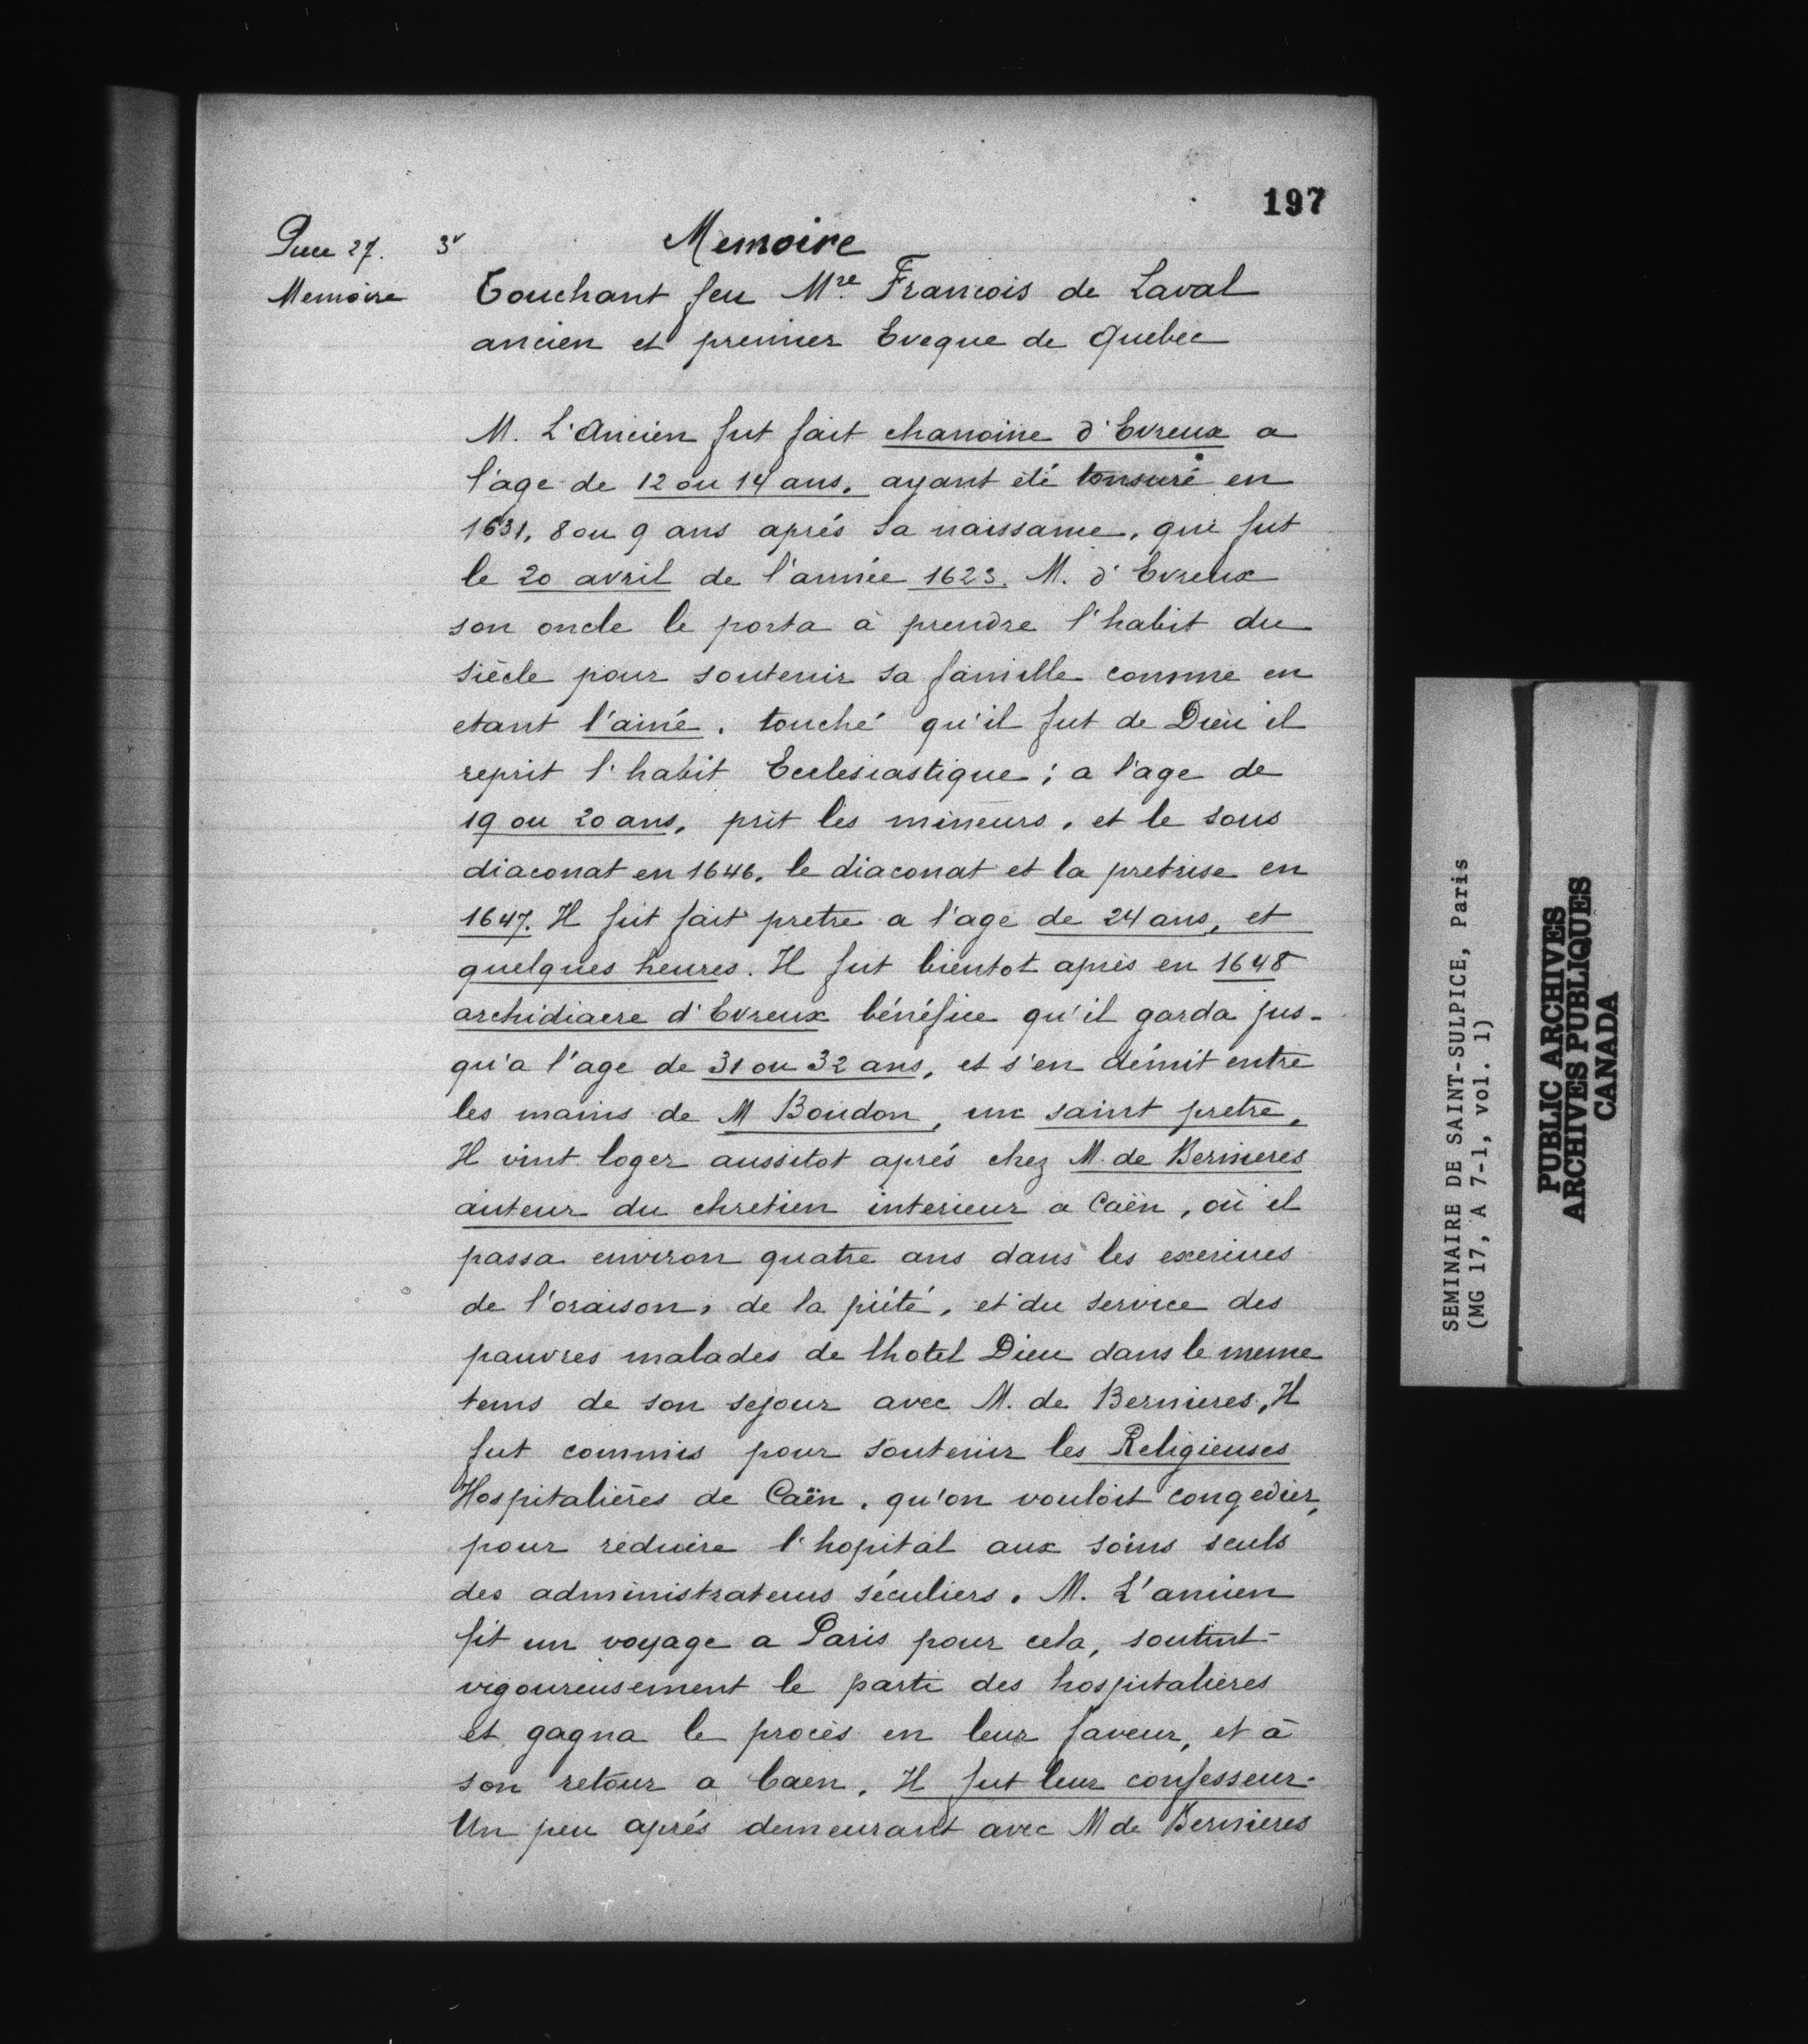 197
Piece 27. 3v Memoire
Memoire Touchant feu Mre. Francois de Laval
ancien et premier Eveque de Quebec
M. L'Ancien fut fait chanoine d'Evreux a
l'age de 12 ou 14 ans, ayant été tonsuré en
1631, 8 ou 9 ans aprés sa naissance, qui fut
le 20 avril de l'année 1623. M. d'Evreux
son oncle le porta à prendre l'habit du
siècle pour soutenir sa famille comme en
etant l'ainé. touché qu'il fut de Dieu il
reprit l'habit Ecclesiastique; a l'age de
19 ou 20 ans, prit les mineurs, et le sous
diaconat en 1646, le diaconat et la pretrise en
1647. Il fut fait pretre a l'age de 24 ans, et
quelques heures. Il fut bientot après en 1648
archidiacre d'Evreux bénéfice qu'il garda jus-
qu'a l'age de 31 ou 32 ans, et s'en démit entre
les mains de M Boudon, un saint pretre,
Il vint loger aussitot aprés chez M. de Bernieres
auteur du chretien interieur a Caën, où il
passa environ quatre ans dans les exercices
de l'oraison, de la piété, et du service des
pauvres malades de lhotel Dieu dans le meme
tems de son sejour avec M. de Bernieres, Il
fut commis pour soutenir les Religieuses
Hospitalières de Caën, qu'on vouloit congedier,
pour reduire l'hopital aux soins seuls
des administrateurs séculiers. M. L'ancien
fit un voyage a Paris pour cela, soutint
vigoureusement le parti des hospitalieres
et gagna le procès en leur faveur, et à
son retour a Caen, Il fut leur confesseur.
Un peu aprés demeurant avec M de Bernieres
SEMINAIRE DE SAINT-SULPICE, Paris
(MG 17, A 7-1, vol. 1)
PUBLIC ARCHIVES
ARCHIVES PUBLIQUES
CANADA